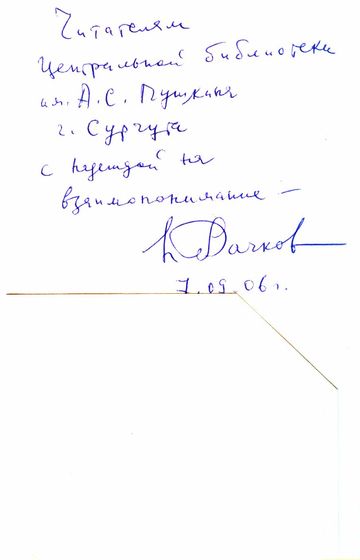 Читателям
Центральной библиотеки
им. А.С. Пушкина
г. Сургута
с надеждой на
взаимопонимание —
7.09.06 г.